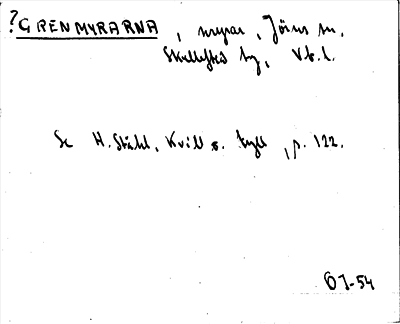 ?GRENMYRARNA, myrar, Jörns sn,
Skellefteå tg, Vb. l.
Se H. Ståhl, Kvill o. tyll, p. 122.
OJ-54